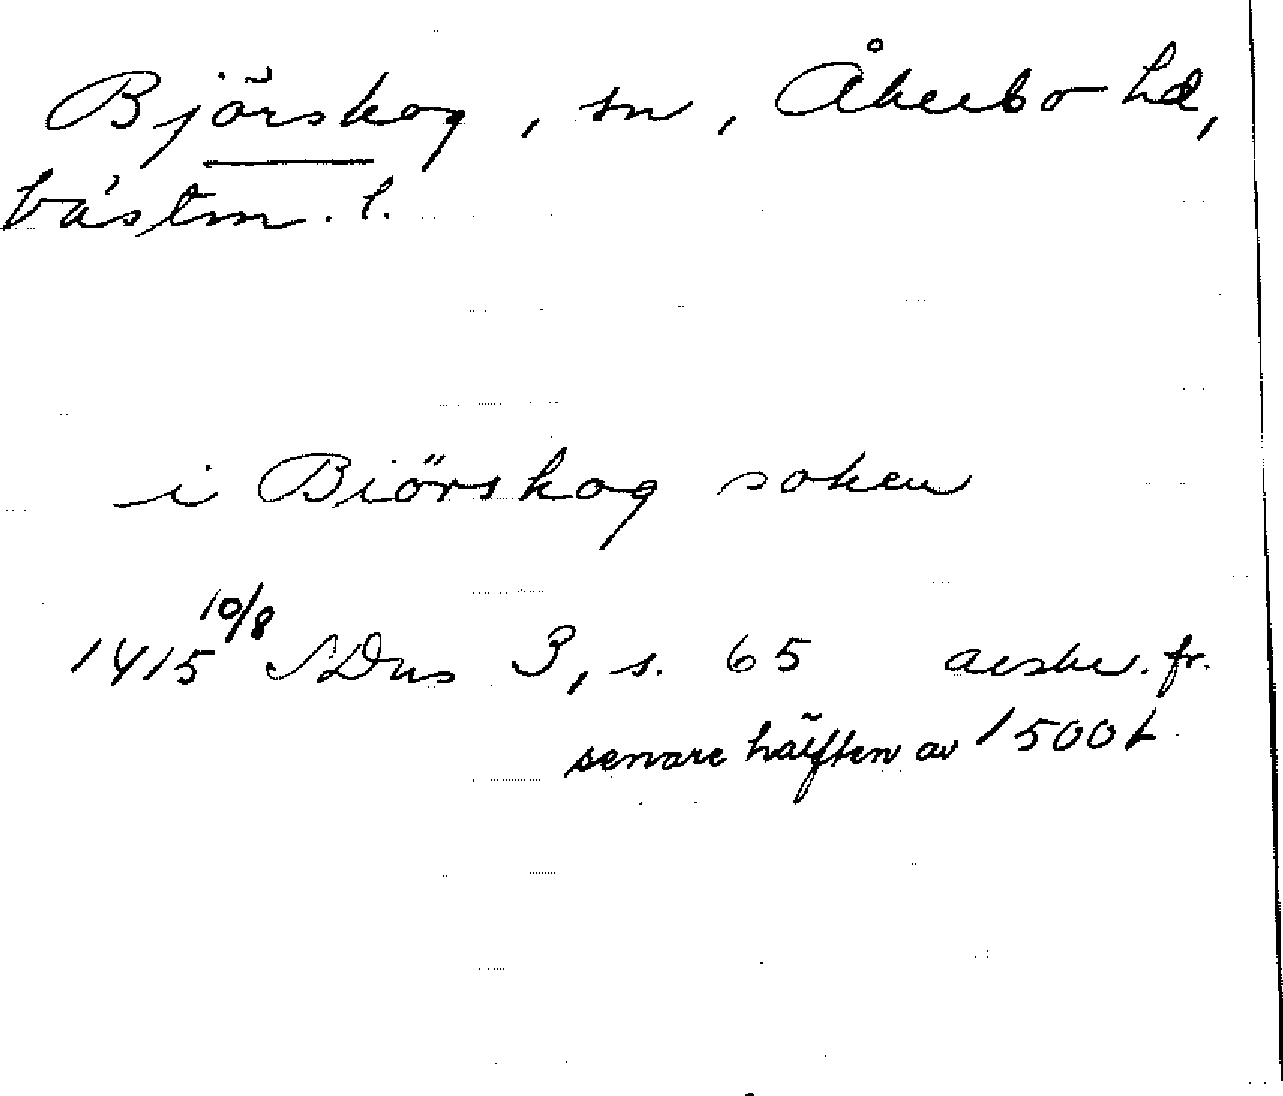 Björskog, sn, Åkerbo hd,
Västm. l.
i Biörskog soken
1415 10/8 SDns 3, s. 65 avskr. fr.
senare hälften av 1500 t.